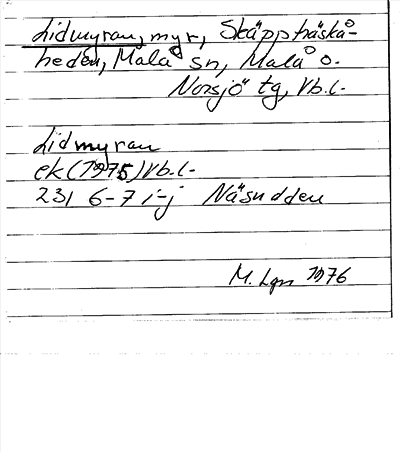 Lidmyran, myr, Skäppträskå-
heden, Malå sn, Malå o.
Norsjö tg, Vb.l.
Lidmyran
ek (1975) Vb.l.
231 6-7 i-j Näsudden
M. Lgn 1976